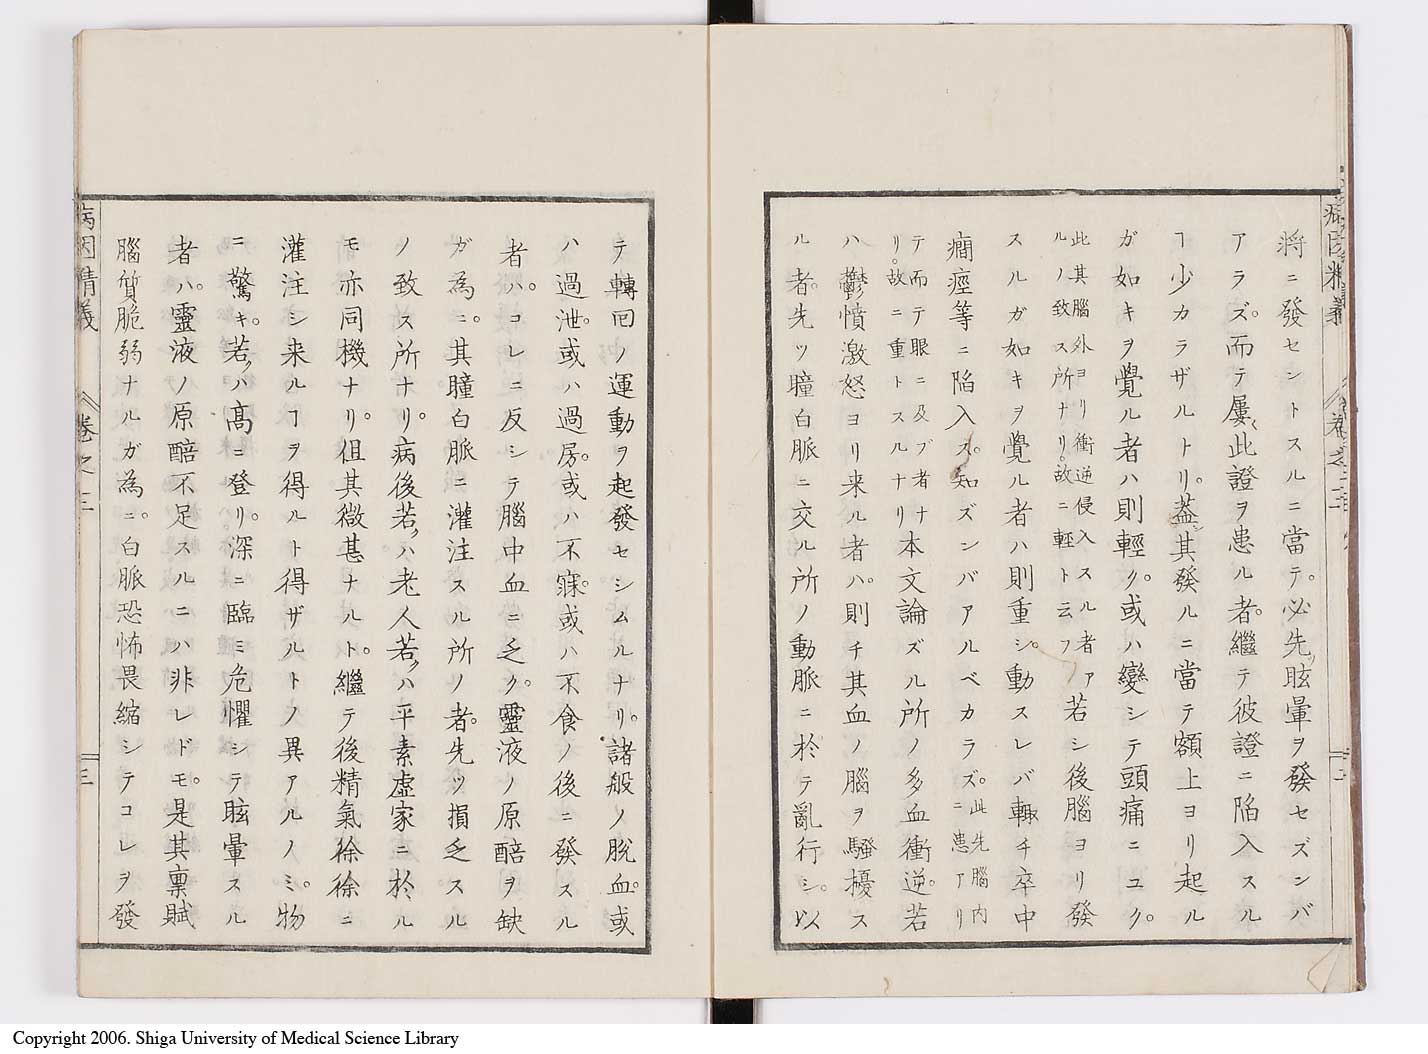 將ニ發セントスルニ當テ。必先ツ眩暈ヲ發セズンバ
アラズ。而テ屢〱此證ヲ患ル者。繼テ彼證ニ陷入スル
ヿ少カラザルトリ。蓋シ其發ルニ當テ額上ヨリ起ル
ガ如キヲ覺ル者ハ則輕ク。或ハ變シテ頭痛ニユク。
此其腦外ヨリ衝逆侵入スル者ァ
ルノ致ス所ナリ。故ニ輕ト云フ
若シ後腦ヨリ發
スルガ如キヲ覺ル者ハ則重シ。動スレバ輙チ卒中
癇痙等ニ陷入ス。知ズンバアルベカラズ。
此先腦内
ニ患アリ
テ而テ眼ニ及ブ者ナ
リ。故ニ重トスルナリ
本文論ズル所ノ多血衝逆。若
ハ鬱憤激怒ヨリ来ル者ハ。則チ其血ノ腦ヲ騷擾ス
ル者。先ツ瞳白脈ニ交ル所ノ動脈ニ於テ亂行シ。以
病因精義
卷之三
テ轉回ノ運動ヲ起發セシムルナリ。諸般ノ脫血。或
ハ過泄。或ハ過房。或ハ不寐。或ハ不食ノ後ニ發スル
者ハ。コレニ反シテ腦中血ニ乏ク。靈液ノ原醅ヲ缺
ガ為ニ。其瞳白脈ニ灌注スル所ノ者。先ツ損乏スル
ノ致ス所ナリ。病後若クハ老人若クハ平素虛家ニ於ル
モ亦同機ナリ。但其微甚ナルト。繼テ後精氣徐徐ニ
灌注シ来ルヿヲ得ルト得ザルトノ異アルノミ。物
ニ驚キ。若クハ高ニ登リ。深ニ臨ミ危懼シテ眩暈スル
者ハ。靈液ノ原醅不足スルニハ非レドモ。是其稟賦
腦質脆弱ナルガ為ニ。白脈恐怖畏縮シテコレヲ發
病因精義
卷之三
三
Copyright 2006. Shiga University of Medical Science Library